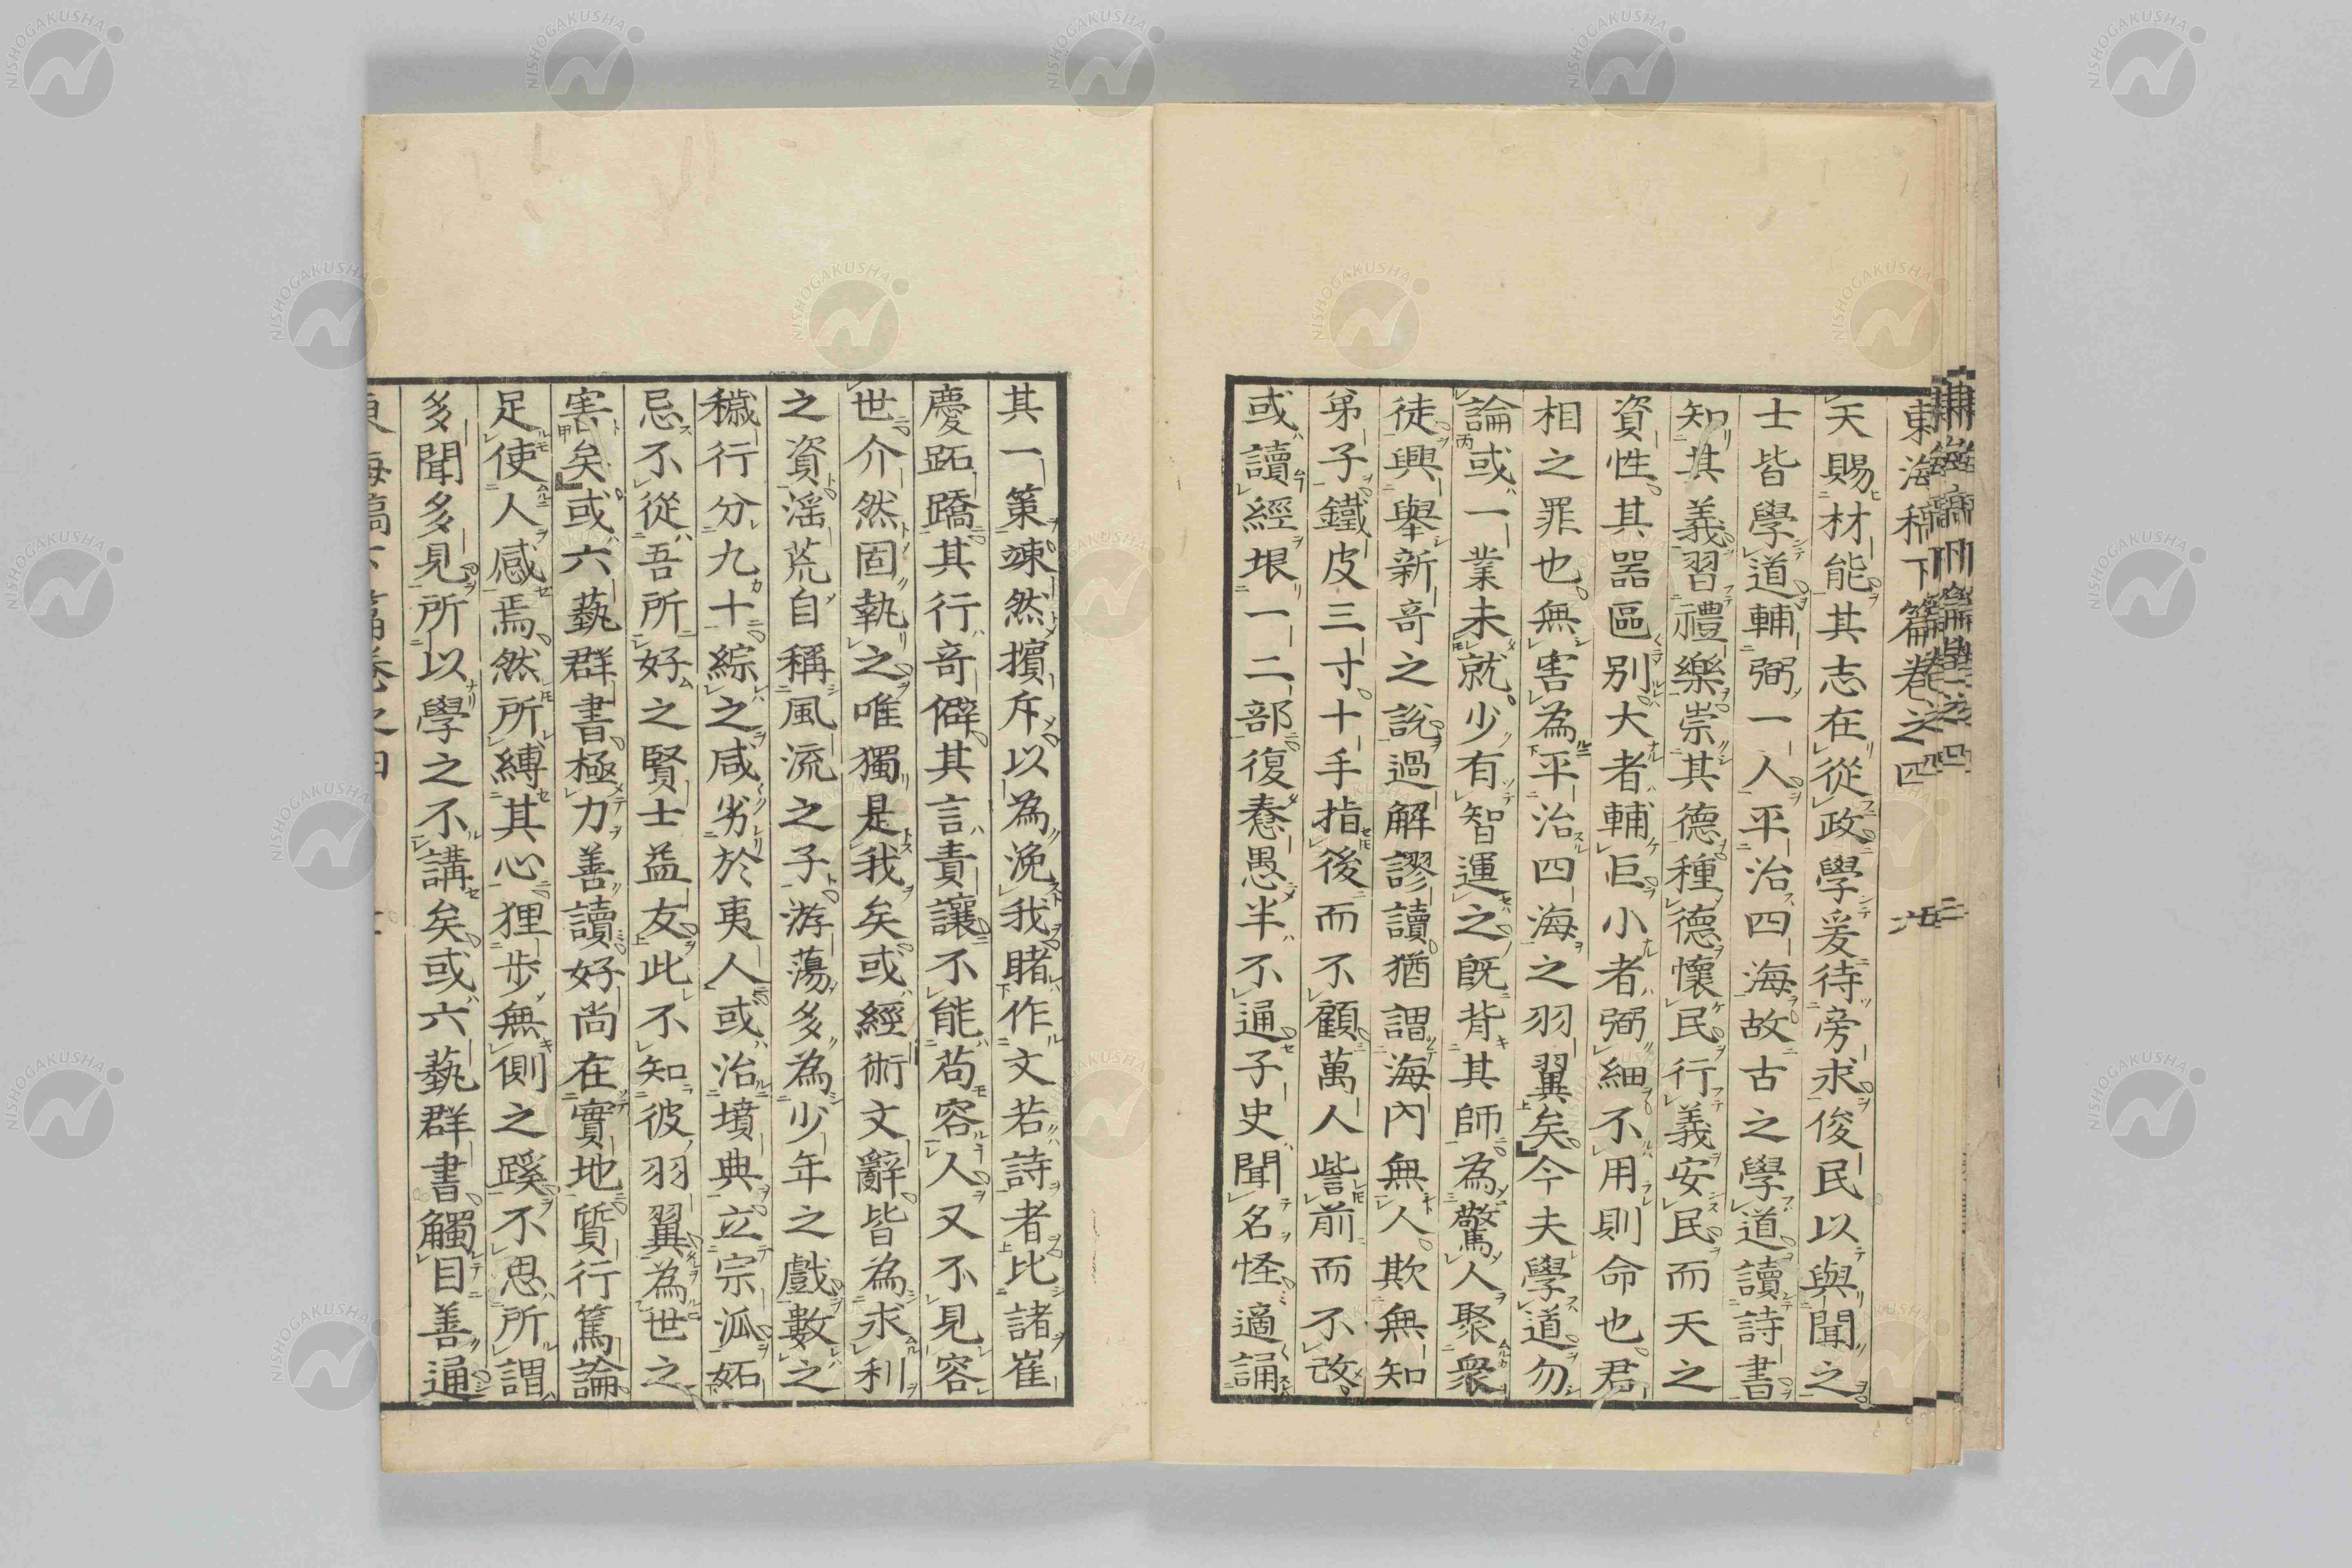 東海稿下篇卷之四
天賜材能其志在從政學爰待旁求俊民以與聞之
士皆學道輔弼一人平治四海故古之學道讀詩書
知其義習禮樂崇其德種德懷民行義安民而天之
資性其器區別大者輔巨小者弼細不用則命也君
相之罪也無害為平治四海之羽翼矣今夫學道勿
論或一業未就少有智運之既背其師為驚人聚衆
徒興舉新奇之說過解謬讀猶謂海內無人欺無知
弟子鐵皮三寸十手指後而不顧萬人訾前而不改
或讀經垠一二部復惷愚半不通子史聞名怪適誦
其一策竦然擯斥以為浼我賭作文若詩者比諸崔
慶跖蹻其行奇僻其言責讓不能苟容人又不見容
世介然固執之唯獨是我矣或經術文辭皆為求利
之資滛荒自稱風流之子游蕩多為少年之戲數之
穢行分九十綜之咸劣於夷人或治墳典立宗派妬
忌不從吾所好之賢士益友此不知彼羽翼為世之
害矣或六藝群書極力善讀好尚在實地質行篤論
足使人感焉然所縛其心狸步無側之蹊不思所謂
多聞多見所以學之不講矣或六藝群書觸目善通
NISHOGAKUSHA